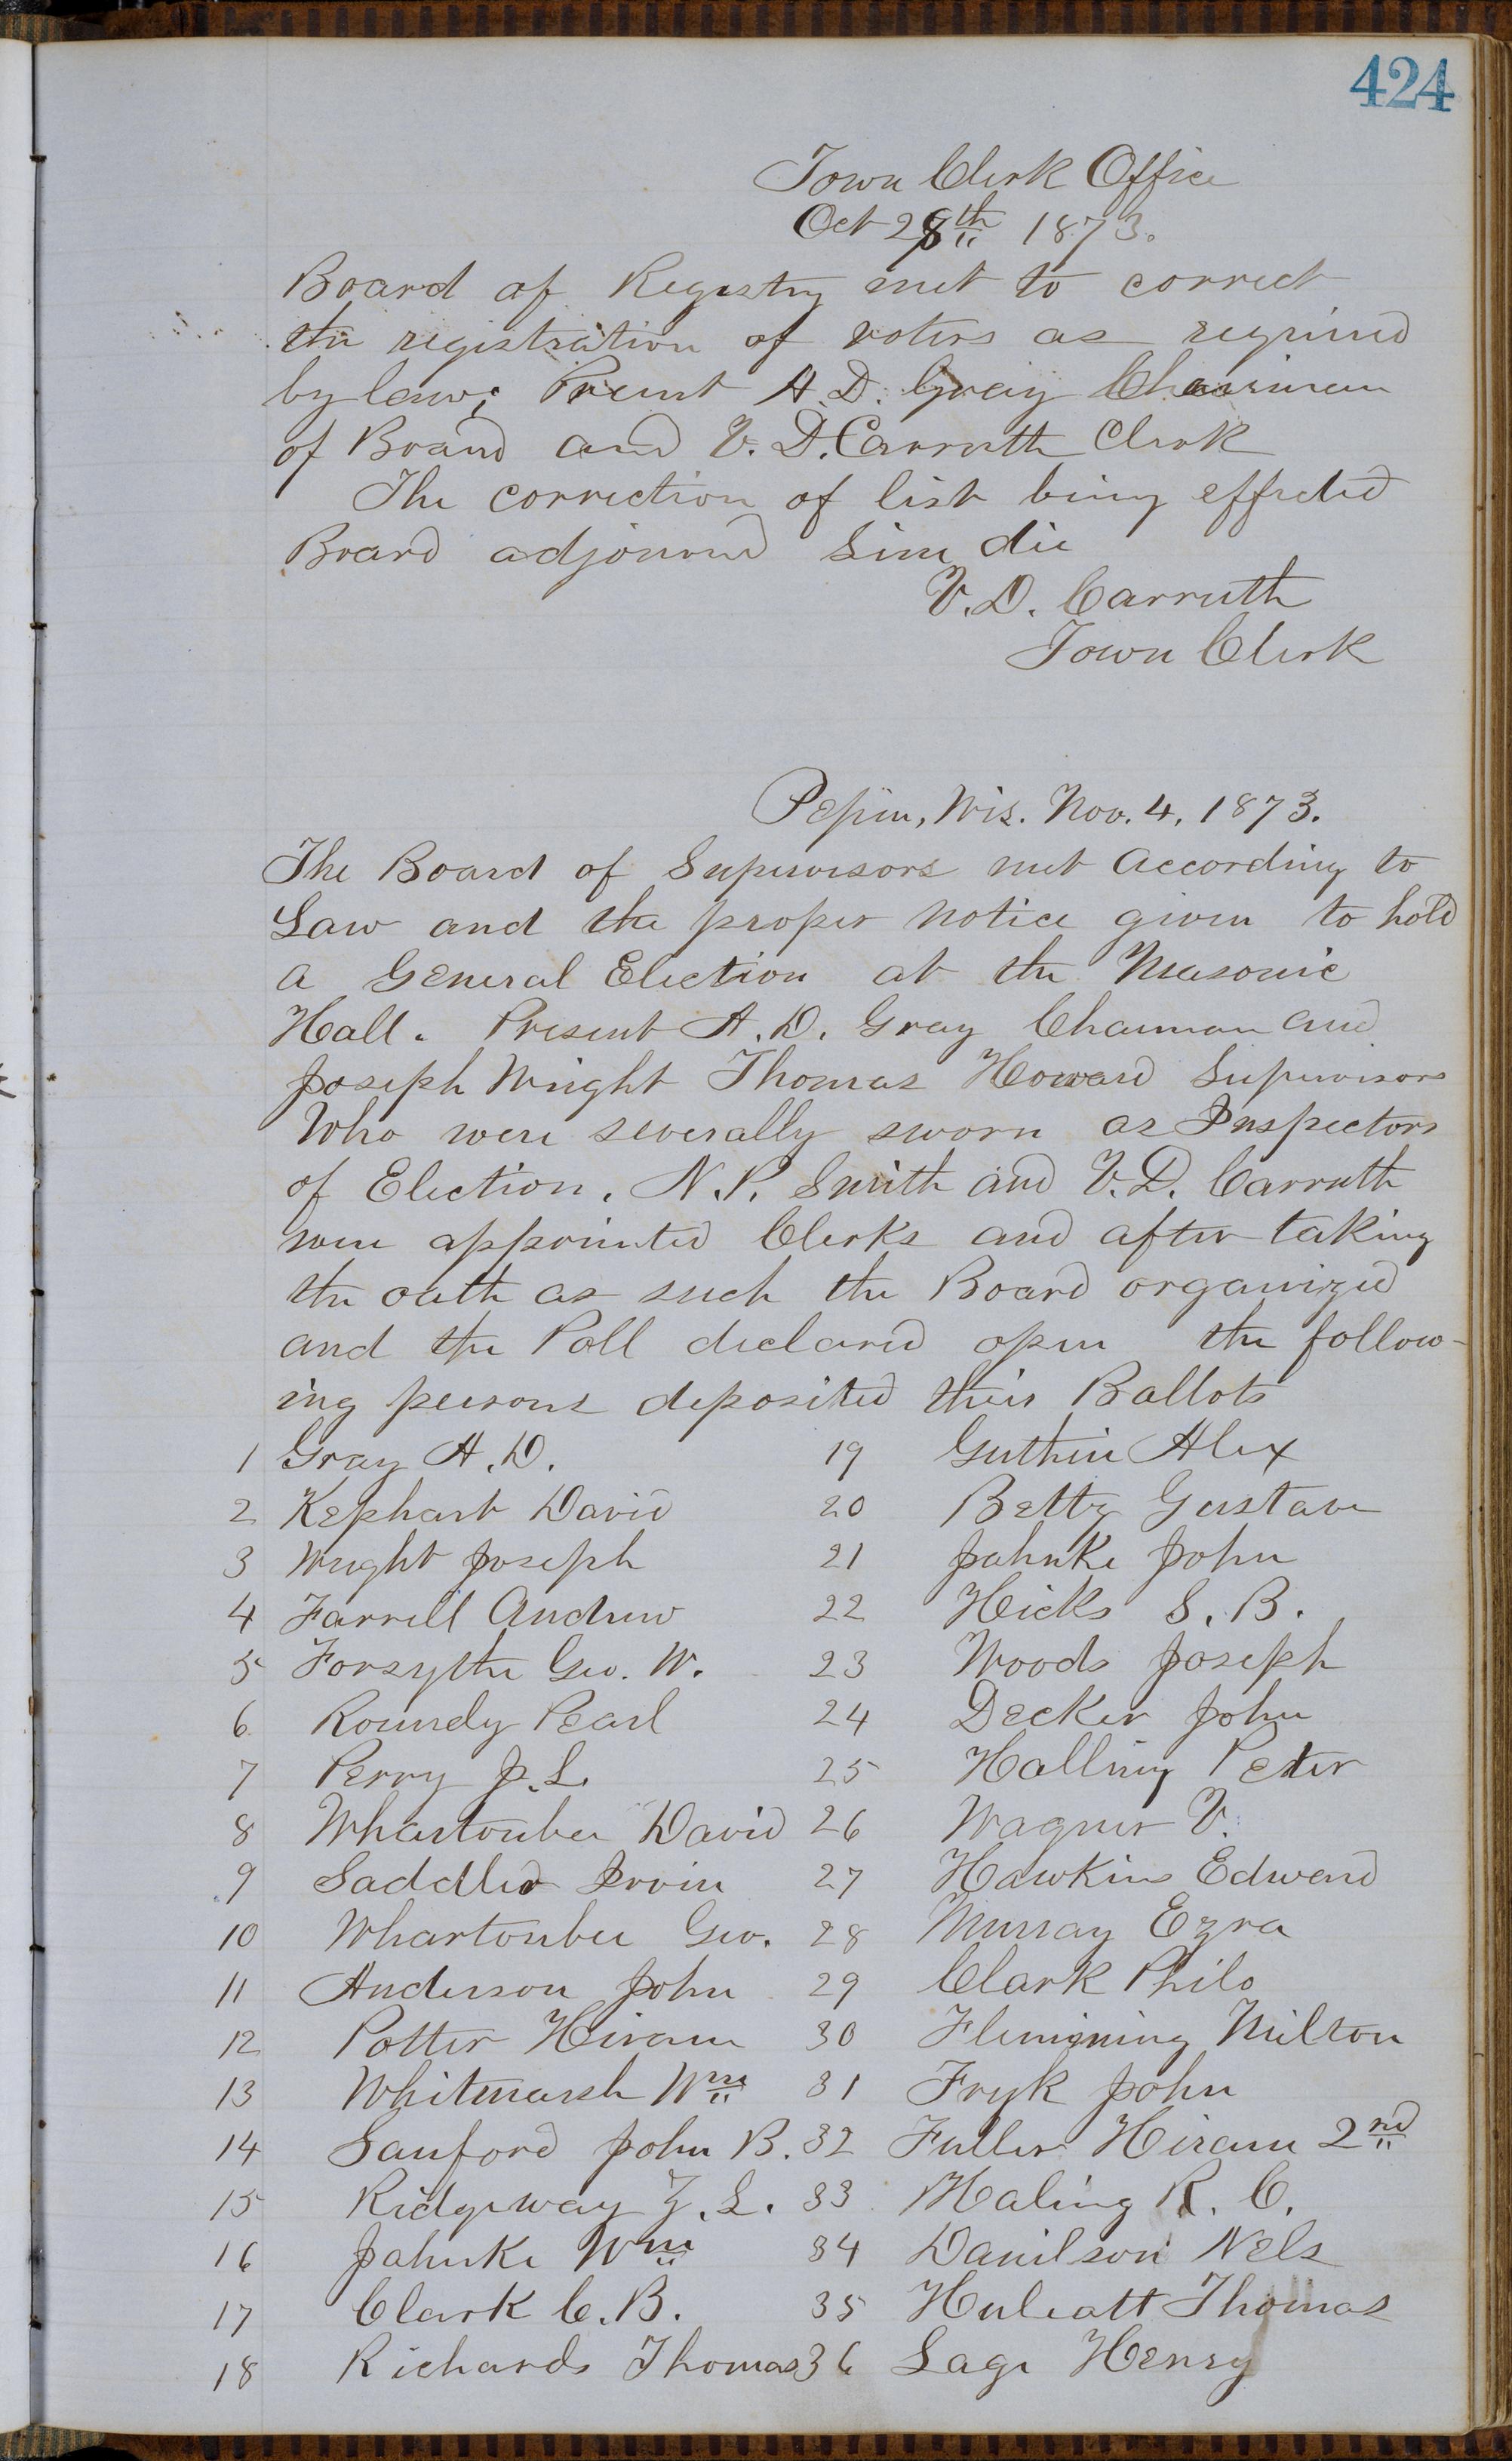 424
Town Clerk Office
Oct 28th 1873.
Board of Registry met to correct
the registration of voters as required
by law; Present A. D. Gray Chairman
of Board and V. D. Carruth Clerk
The correction of list being effected
Board adjourned Sine die
V. D. Carruth
Town Clerk
Pepin, Wis. Nov. 4, 1873.
The Board of Supervisors met according to
Law and the proper notice given to hold
a General Election at the Masonic
Hall. Present A. D. Gray Chairman and
Joseph Wright Thomas Howard Supervisors
Who were severally sworn as Inspectors
of Election. N. P. Smith and V. D. Carruth
were appointed Clerks and after taking
the oath as such the Board organized
and the Poll declared open the follow-
ing persons deposited their Ballots
1 Gray A. D.
2 Kephart David
3 Wright Joseph
4 Farrell Andrew
5 Forsythe Geo. W.
6 Roundy Pearl
7 Perry J. L.
8 Whartonbee David
9 Saddler Irvin
10 Whartonbee Geo.
11 Anderson John
12 Potter Hiram
13 Whitmarsh Wm
14 Sanford John B.
15 Ridgeway Z. L.
16 Jahnke Wm
17 Clark C. B.
18 Richards Thomas
19 Guthrie Alex
20 Betty Gustave
21 Jahnke John
22 Hicks S. B.
23 Woods Joseph
24 Decker John
25 Halling Peter
26 Wagner V.
27 Hawkins Edward
28 Murray Ezra
29 Clark Philo
30 Flemming Milton
31 Fryk John
32 Fuller Hiram 2nd
33 Maling R. C.
34 Danilson Nels
35 Huleatt Thomas
36 Lage Henry